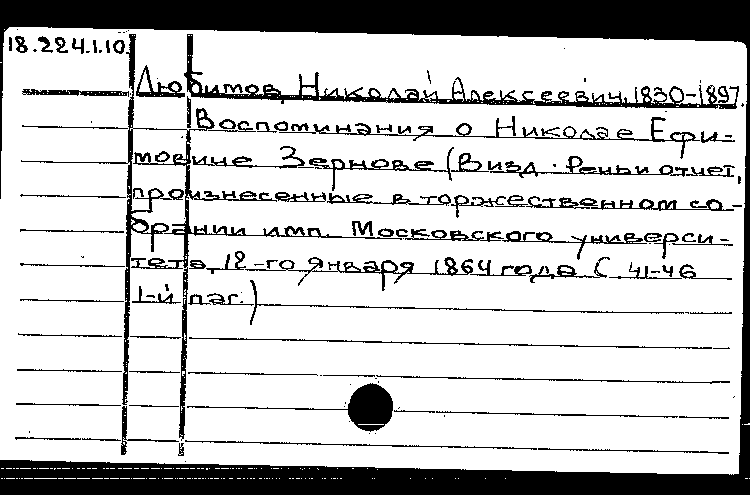 18.224.1.10.
Любимов, Николай Алексеевич, 1830-1897.
Воспоминания о Николае Ефи-
мовиче Зернове (В изд. Речи и отчет,
произнесенные в торжественном со-
брании имп. Московского универси-
тета, 12-го января 1864 года С. 41-46
1-й паг.)